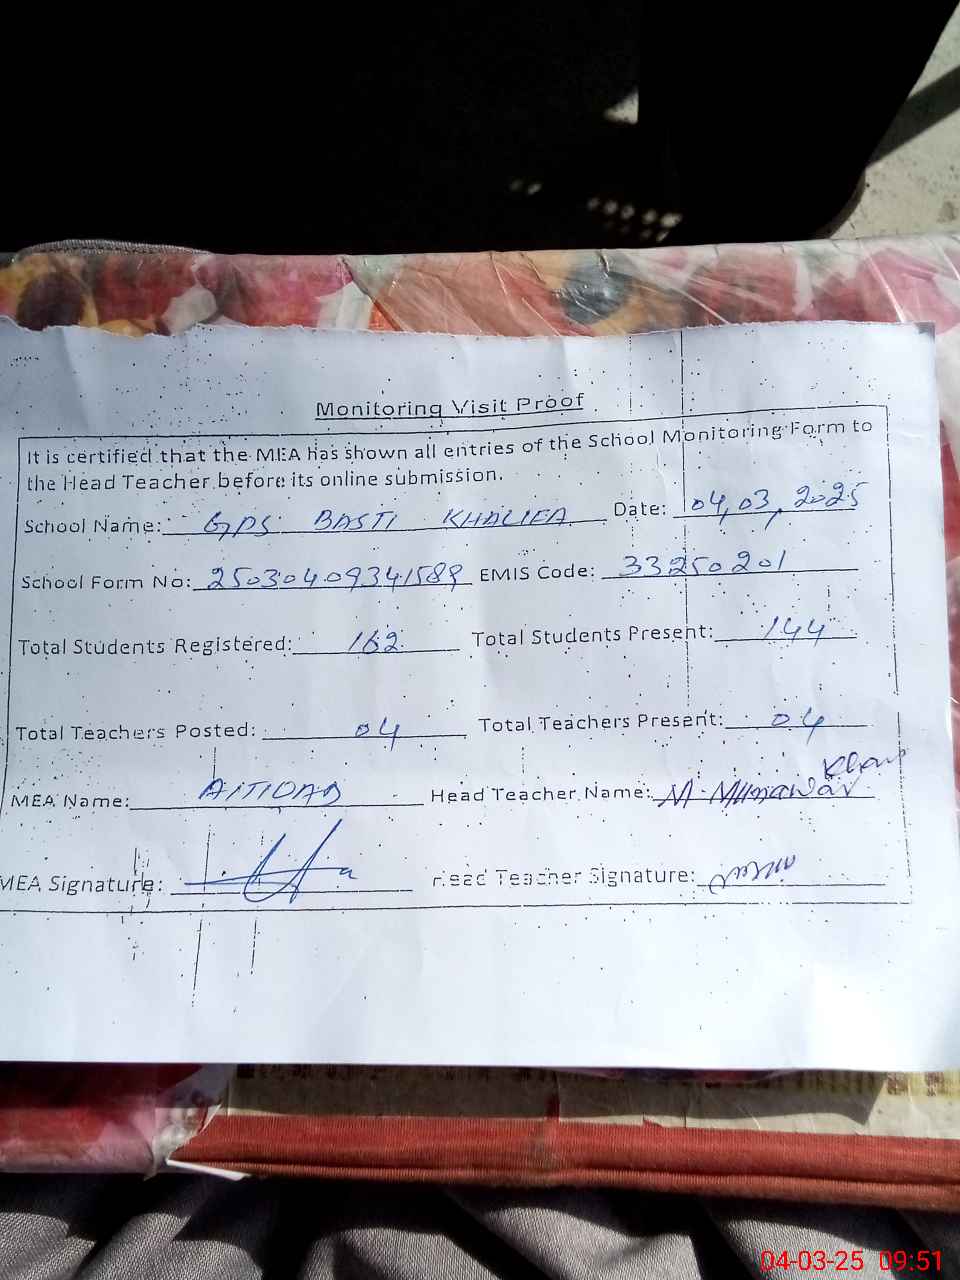 Monitoring Visit Proof
It is certified that the MEA has shown all entries of the School Monitoring Form to
the Head Teacher before its online submission.
School Name: GPS BASTI KHALIFA Date: 04,03,2025
School Form No: 25030409341589 EMIS Code: 33250201
Total Students Registered: 162 Total Students Present: 144
Total Teachers Posted: 04 Total Teachers Present: 04
MEA Name: Head Teacher Name: M. Munawar Khan
MEA Signature: Head Teacher Signature:
04-03-25 09:51